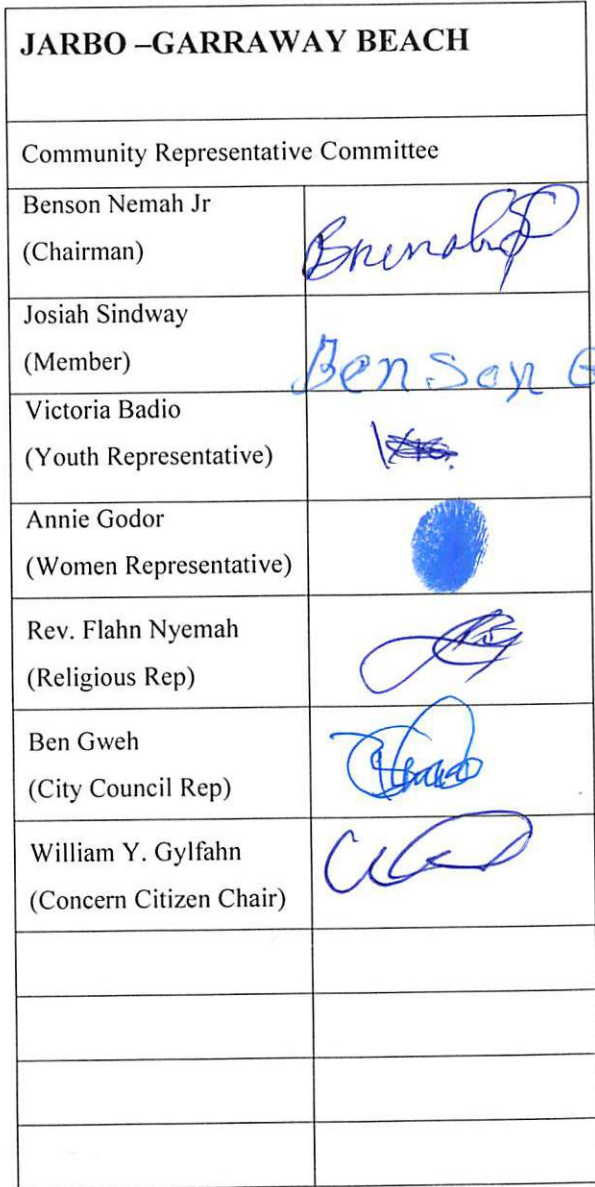 JARBO –GARRAWAY BEACH
Community Representative Committee
Benson Nemah Jr
(Chairman)
Josiah Sindway
(Member)
Benson G
Victoria Badio
(Youth Representative)
Annie Godor
(Women Representative)
Rev. Flahn Nyemah
(Religious Rep)
Ben Gweh
(City Council Rep)
William Y. Gylfahn
(Concern Citizen Chair)